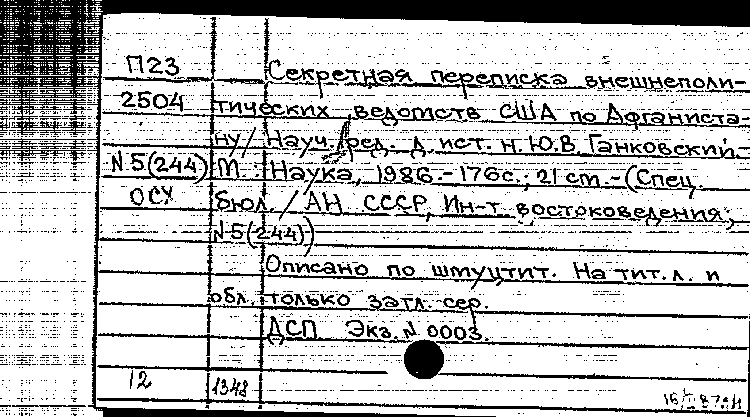 П23 Секретная переписка внешнеполи-
2504 тических ведомств США по Афганиста-
ну/ Науч. ред. д. ист. н. Ю.В. Ганковский.
N5(244) М. Наука, 1986.-176с.; 21 см.-(Спец.
ОСУ бюл. / АН СССР, Ин-т востоковедения;
N5(244))
Описано по шмуцтит. На тит. л. и
обл. только загл. сер.
ДСП Экз. N 0003.
12 1348